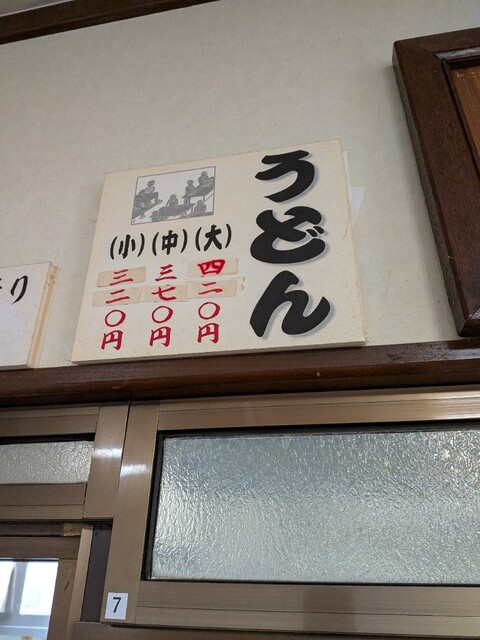 うどん
(大)
四二〇円
(中)
三七〇円
(小)
三二〇円
り
7